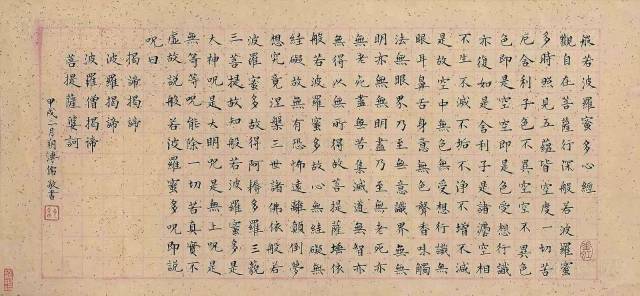 般若波羅蜜多心經
觀自在菩薩行深般若波羅蜜
多時照見五蘊皆空度一切苦
厄舍利子色不異空空不異色
色即是空空即是色受想行識
亦復如是舍利子是諸法空相
不生不滅不垢不淨不增不減
是故空中無色無受想行識無
眼耳鼻舌身意無色聲香味觸
法無眼界乃至無意識界無無
明亦無無明盡乃至無老死亦
無老死盡無苦集滅道無智亦
無得以無所得故菩提薩埵依
般若波羅蜜多故心無絓礙無
絓礙故無有恐怖遠離顛倒夢
想究竟涅槃三世諸佛依般若
波羅蜜多故得阿耨多羅三藐
三菩提故知般若波羅蜜多是
大神呪是大明呪是無上呪是
無等等呪能除一切苦真實不
虛故說般若波羅蜜多呪即說
呪曰
揭諦揭諦
波羅揭諦
波羅僧揭諦
菩提薩婆訶
甲戌二月朔溥儒敬書